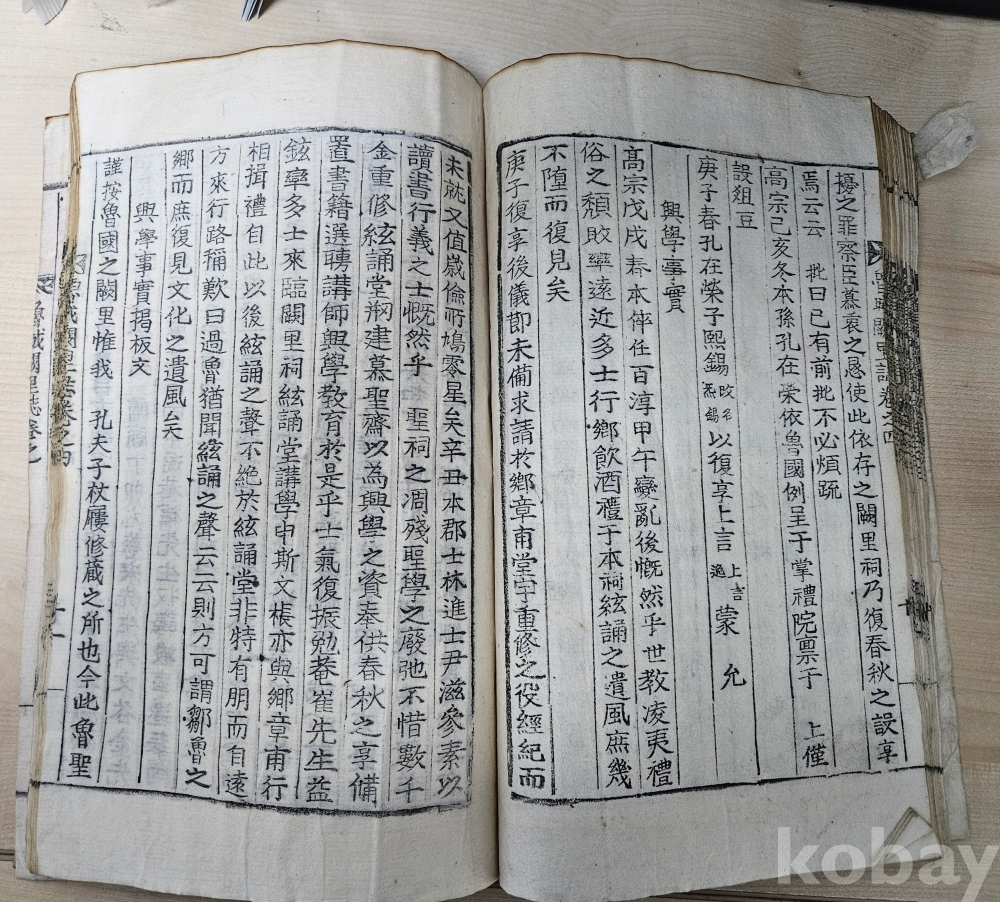 擾之罪察臣慕衷之懇使此依存之闕里祠乃復春秋之設享
焉云云 批曰已有前批不必煩疏
高宗己亥冬本孫孔在榮依魯國例呈于掌禮院禀于 上僅
設俎豆
庚子春孔在榮子熙錫改名炁錫以復享上言上言逸蒙 允
興學事實
高宗戊戌春本倅任百淳甲午變亂後慨然乎世教凌夷禮
俗之頹敗率遠近多士行鄉飮酒禮于本祠絃誦之遺風庶幾
不墮而復見矣
庚子復享後儀節未備求請於鄉章甫堂宇重修之役經紀而
未就又値歲儉所鳩零星矣辛丑本郡士林進士尹滋參素以
讀書行義之士慨然乎 聖祠之凋殘聖學之廢弛不惜數千
金重修絃誦堂刱建慕聖齋以爲興學之資奉供春秋之享備
置書籍選聘講師興學教育於是乎士氣復振勉菴崔先生益
鉉率多士來臨闕里祠絃誦堂講學申斯文棖亦與鄉章甫行
相揖禮自此以後絃誦之聲不絶於絃誦堂非特有朋而自遠
方來行路稱歎曰過魯猶聞絃誦之聲云云則方可謂鄒魯之
鄉而庶復見文化之遺風矣
興學事實揭板文
謹按魯國之闕里惟我 孔夫子杖屨修藏之所也今此魯聖
魯城闕里誌卷之四
kobay